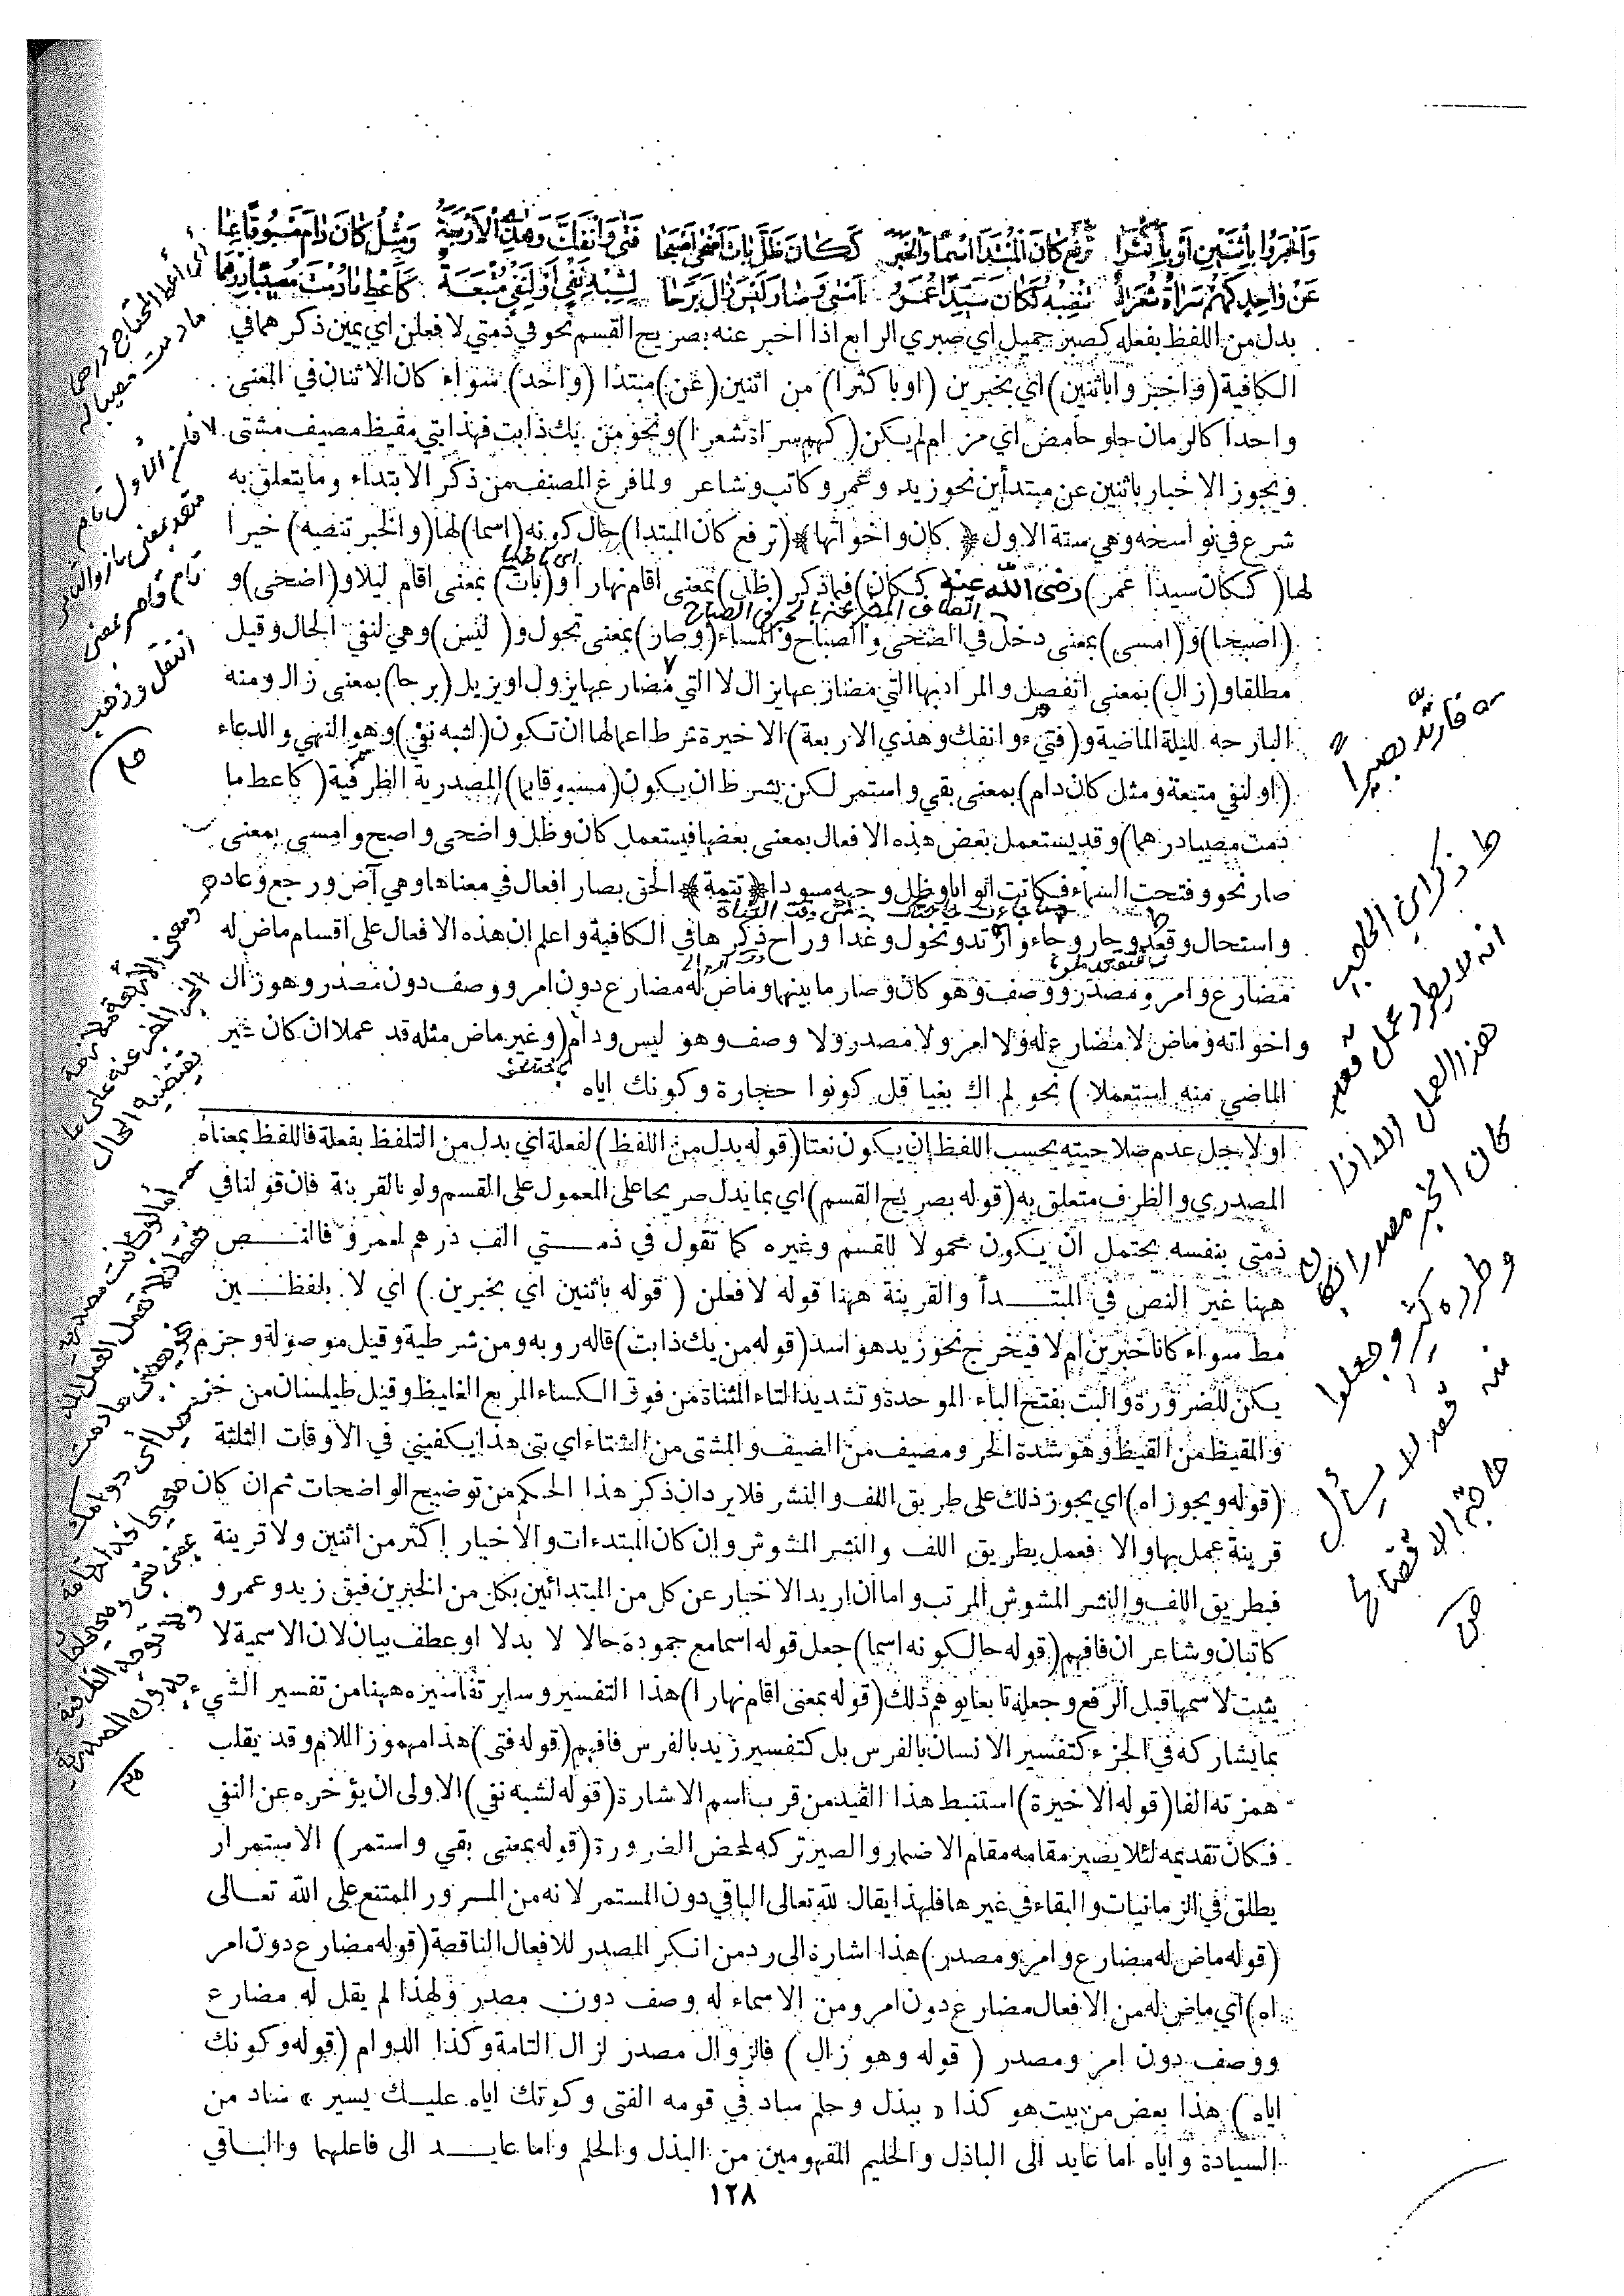 وَاَخْبَرُوا بِاثْنَيْنِ اَوْ بِاَكْثَرَا تَرْفَعُ كَانَ الْمُبْتَدَا اسْمًا وَالْخَبَرْ كَكَانَ ظَلَّ بَاتَ اَضْحَى اَصْبَحَا فَتِئَ وَانْفَكَّ وَهَذِي الْاَرْبَعَةْ وَمِثْلُ كَانَ دَامَ مَسْبُوقًا بِمَا
عَنْ وَاحِدٍ كَهُمْ سَرَاةٌ شُعَرَا تَنْصِبُهُ كَكَانَ سَيِّدًا عُمَرْ اَمْسَى وَصَارَ لَيْسَ زَالَ بَرِحَا لِشِبْهِ نَفْيٍ اَوْ لِنَفْيٍ مُتْبَعَةْ كَاَعْطِ مَا دُمْتَ مُصِيبًا دِرْهَمَا
بدل من اللفظ بفعله كصبر جميل اي صبري الرابع اذا اخبر عنه بصريح القسم نحو في ذمتي لافعلن اي يمين ذكرهما في
الكافية (واخبروا باثنين) اي بخبرين (او باكثرا) من اثنين (عن) مبتدا (واحد) سواء كان الاثنان في المعنى
واحدا كالرمان حلو حامض اي مز ام لم يكن (كهم سراة شعرا) ونحو من يك ذا بت فهذا بتي مقيظ مصيف مشتى
ويجوز الاخبار باثنين عن مبتدأين نحو زيد وعمرو كاتب وشاعر ولما فرغ المصنف من ذكر الابتداء وما يتعلق به
شرع في نواسخه وهي ستة الاول ﴿كان واخواتها﴾ (ترفع كان المبتدا) حال كونه (اسما) لها (والخبر تنصبه) خبرا
لها (ككان سيدا عمر) رضى الله عنه (ككان) فيما ذكر (ظل) بمعنى اقام نهارا او (بات) بمعنى اقام ليلا و (اضحى) و
(اصبحا) و (امسى) بمعنى دخل في الضحى والصباح والمساء (وصار) بمعنى تحول و (ليس) وهي لنفي الحال وقيل
مطلقا و (زال) بمعنى انفصل والمراد بها التي مضارعها يزال لا التي مضارعها يزول او يزيل (برحا) بمعنى زال ومنه
البارحه لليلة الماضية و (فتىء وانفك وهذي الاربعة) الاخيرة شرط اعمالها ان تكون (لشبه نفي) وهو النهي والدعاء
(او لنفي متبعة ومثل كان دام) بمعنى بقي واستمر لكن بشرط ان يكون (مسبوقا بما) المصدرية الظرفية (كاعط ما
دمت مصيبا درهما) وقد يستعمل بعض هذه الافعال بمعنى بعضها فيستعمل كان وظل واضحى واصبح وامسى بمعنى
صار نحو وفتحت السماء فكانت ابوابا وظل وجهه مسودا ﴿تتمة﴾ الحق بصار افعال في معناها وهي آض ورجع وعاد
واستحال وقعد وحار وجاء وارتد وتحول وغدا وراح ذكرها في الكافية واعلم ان هذه الافعال على اقسام ماض له
مضارع وامر ومصدر ووصف وهو كان وصار ما بينهما وماض له مضارع دون امر ووصف دون مصدر وهو زال
واخواته وماض لا مضارع له ولا امر ولا مصدر ولا وصف وهو ليس ودام (وغير ماض مثله قد عملا ان كان غير
الماضي منه استعملا) نحو لم اك بغيا قل كونوا حجارة وكونك اياه
او لاجل عدم صلاحيته بحسب اللفظ ان يكون نعتا (قوله بدل من اللفظ) لفعلة اي بدل من التلفظ بفعلة فاللفظ بمعناه
المصدري والظرف متعلق به (قوله بصريح القسم) اي بما يدل صريحا على المعمول على القسم ولو بالقرينة فان قولنا في
ذمتي بنفسه يحتمل ان يكون محمولا للقسم وغيره كما تقول في ذمتي الف درهم لعمرو فالنص
ههنا غير النص في المبتدأ والقرينة ههنا قوله لافعلن ( قوله باثنين اي بخبرين ) اي لا بلفظين
مط سواء كانا خبرين ام لا فيخرج نحو زيد هو اسد (قوله من يك ذا بت) قاله روبه ومن شرطية وقيل موصولة وجزم
يكن للضرورة والبت بفتح الباء الموحدة وتشديد التاء المثناة من فوق الكساء المربع الغليظ وقيل طيلسان من خز
والمقيظ من القيظ وهو شدة الحر ومصيف من الصيف والمشتى من الشتاء اي بتي هذا يكفيني في الاوقات الثلثة
(قوله ويجوز اه) اي يجوز ذلك على طريق اللف والنشر فلا يرد ان ذكر هذا الحكم من توضيح الواضحات ثم ان كان
قرينة عمل بها والا فعمل بطريق اللف والنشر المشوش وان كان المبتدءات والاخبار اكثر من اثنين ولا قرينة
فبطريق اللف والنشر المشوش المرتب واما ان اريد الاخبار عن كل من المبتدائين بكل من الخبرين فيق زيد وعمرو
كاتبان وشاعران فافهم (قوله حال كونه اسما) جعل قوله اسما مع جموده حالا لا بدلا او عطف بيان لان الاسمية لا
يثبت لاسمها قبل الرفع وجعله تابعا يوهم ذلك (قوله بمعنى اقام نهارا) هذا التفسير وساير تفاسيره ههنا من تفسير الشيء
بما يشاركه في الجزء كتفسير الانسان بالفرس بل كتفسير زيد بالفرس فافهم (قوله فتى) هذا مهموز اللام وقد يقلب
همزته الفا (قوله الاخيرة) استنبط هذا القيد من قرب اسم الاشارة (قوله لشبه نفي) الاولى ان يؤخره عن النفي
فكان تقديمه لئلا يصير مقامه مقام الاضمار والصير تركه لمحض الضرورة (قوله بمعنى بقي واستمر) الاستمرار
يطلق في الزمانيات والبقاء في غيرها فلهذا يقال لله تعالى الباقي دون المستمر لانه من المرور الممتنع على الله تعالى
(قوله ماض له مضارع وامر ومصدر) هذا اشارة الى رد من انكر المصدر للافعال الناقصة (قوله مضارع دون امر
اه) اي ماض له من الافعال مضارع دون امر ومن الاسماء له وصف دون مصدر ولهذا لم يقل له مضارع
ووصف دون امر ومصدر ( قوله وهو زال ) فالزوال مصدر لزال التامة وكذا الدوام (قوله وكونك
اياه) هذا بعض من بيت هو كذا « ببذل وحلم ساد في قومه الفتى وكونك اياه عليك يسير » ساد من
السيادة واياه اما عايد الى الباذل والحليم المفهومين من البذل والحلم واما عايد الى فاعلهما والباقي
١٢٨
اى اعط المحتاج درهما
ما دمت مصيبا له
انتقل وذهب
فارتد بصيراً
ذكر ابن الحاجب
انه لا يطرد عمل قعد
هذا العمل الا اذا
كان الخبر مصدرا بكان
وجعلوا
منه قعد لا يسأل
حاجة الا قضاها